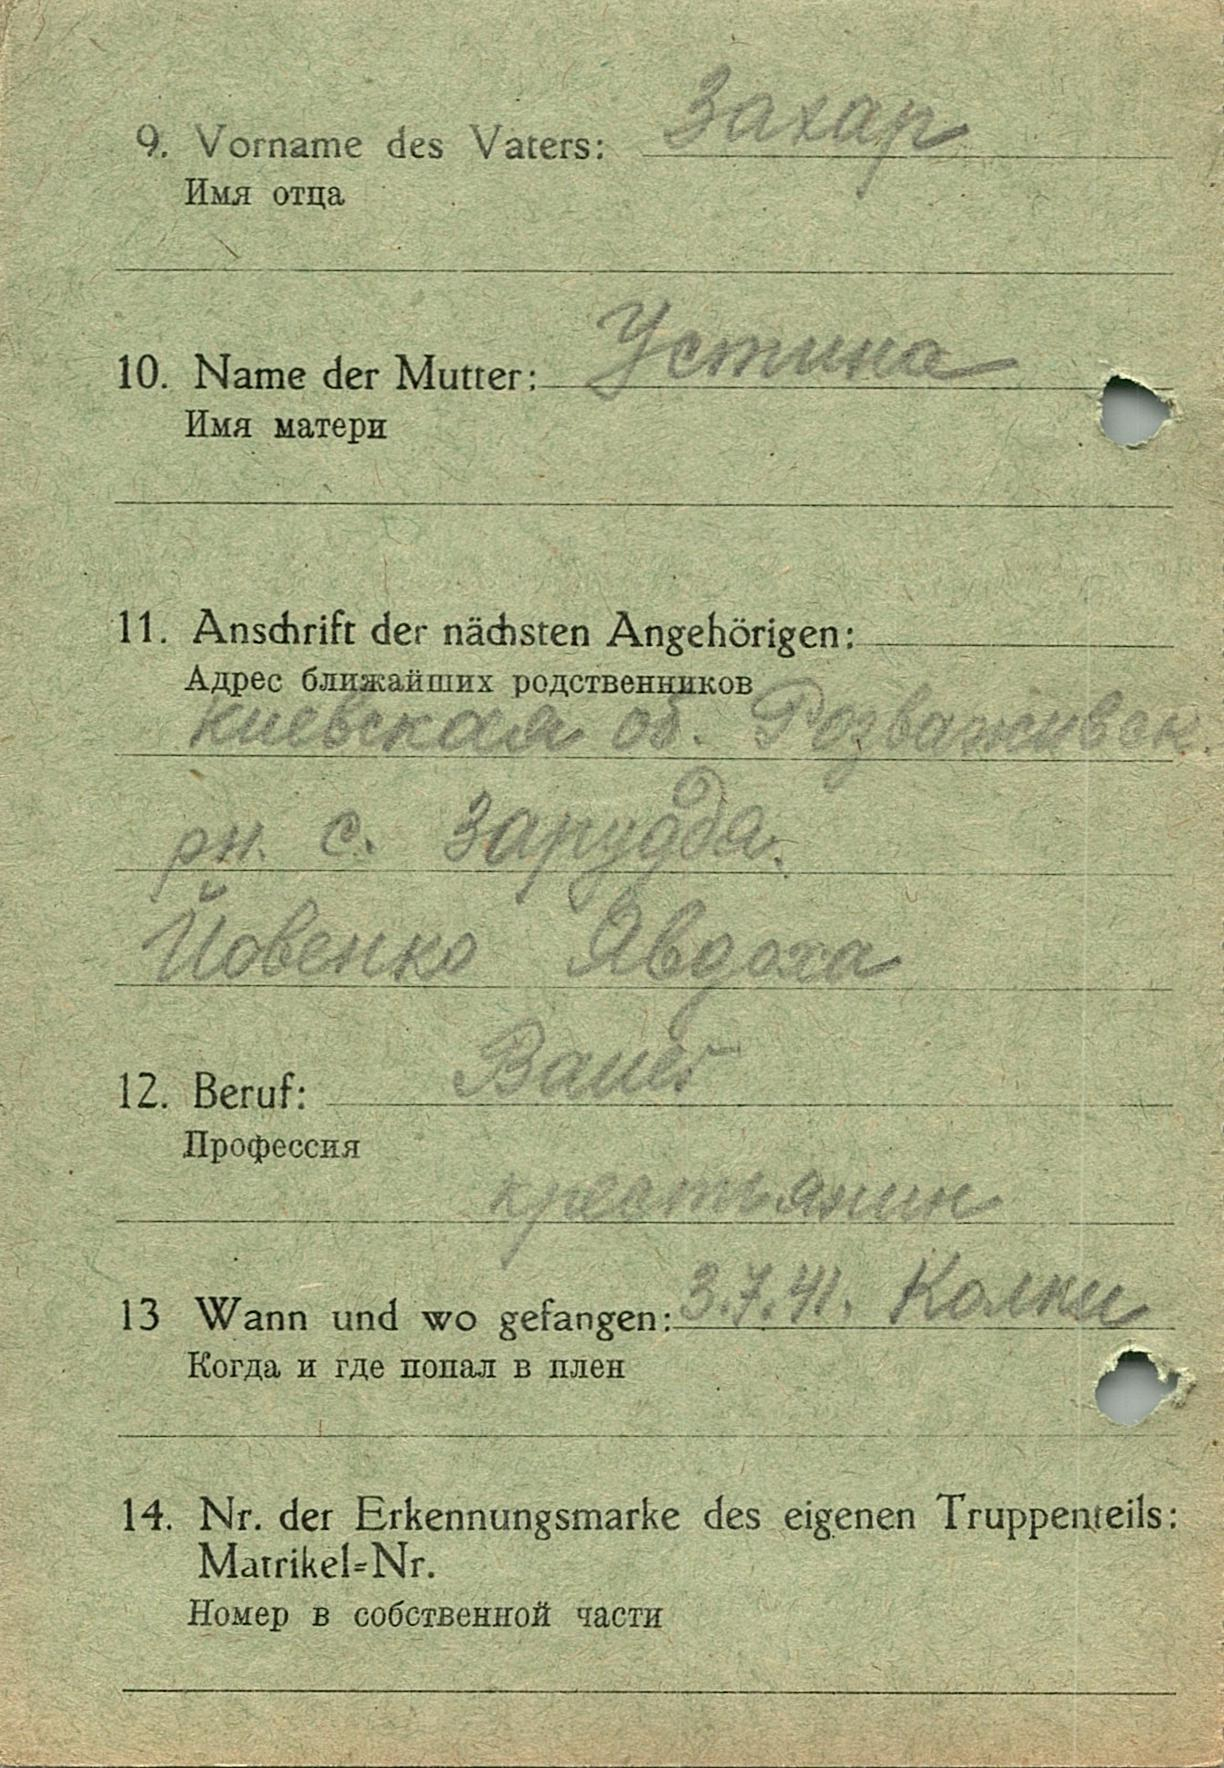 9. Vorname des Vaters: Захар
Имя отца
10. Name der Mutter: Устина
Имя матери
11. Anschrift der nächsten Angehörigen:
Адрес ближайших родственников
Киевская об. Розваживск.
рн. с. Зарудда.
Йовенко Явдоха
12. Beruf: Bauer
Профессия
крестьянин
13 Wann und wo gefangen: 3.7.41. Колки
Когда и где попал в плен
14. Nr. der Erkennungsmarke des eigenen Truppenteils:
Matrikel=Nr.
Номер в собственной части